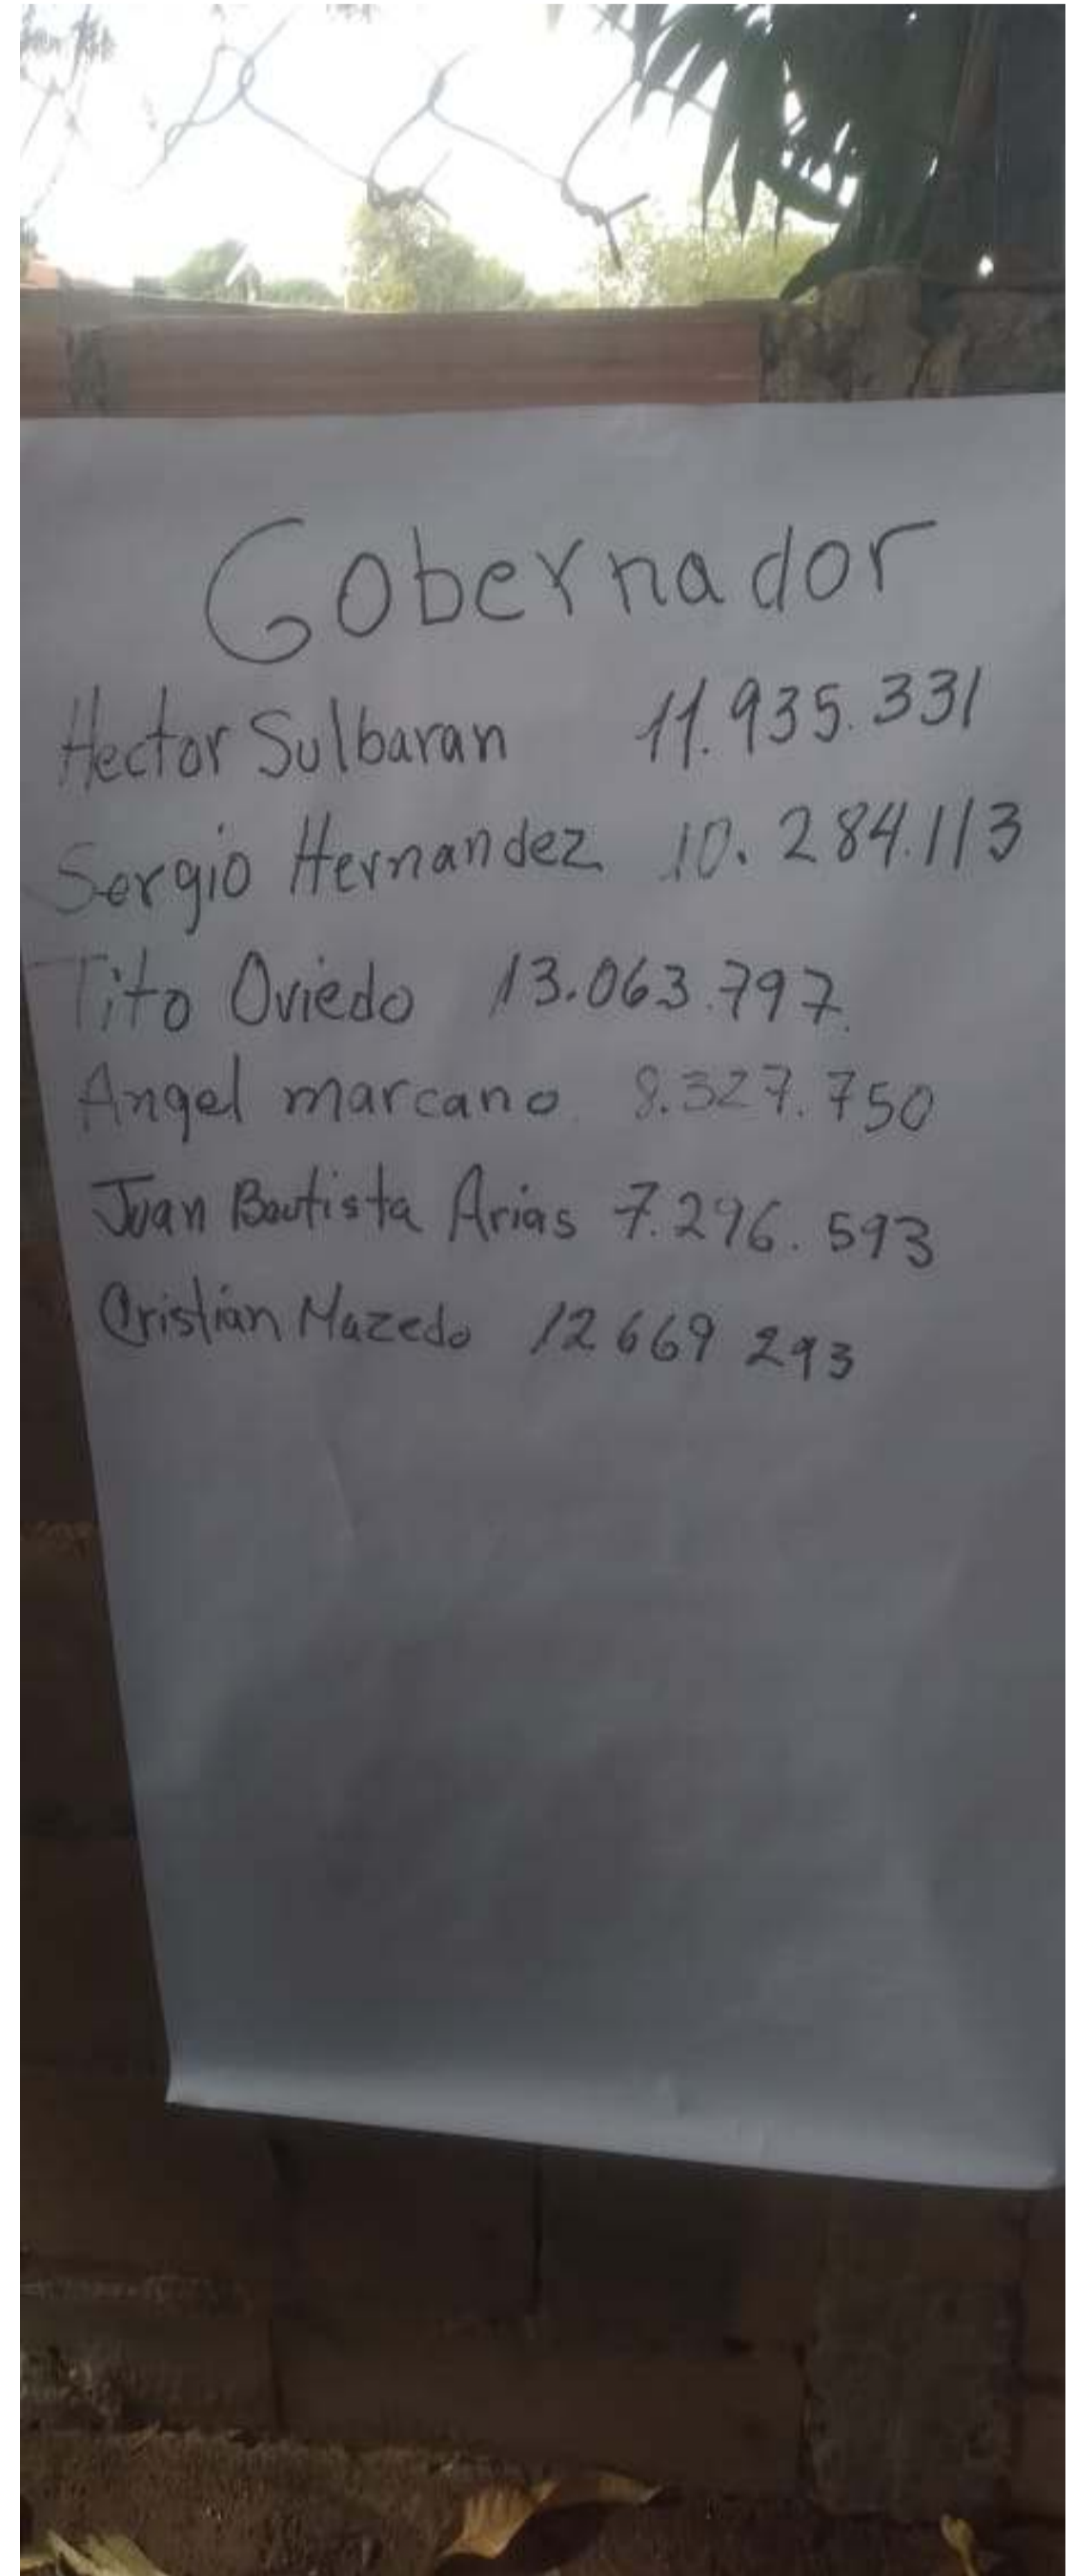 Gobernador
Hector Sulbaran 11.935.331
Sergio Hernandez 10.284.113
Tito Oviedo 13.063.797.
Angel marcano 8.327.750
Juan Bautista Arias 7.296.593
Cristian Mazedo 12 669 293